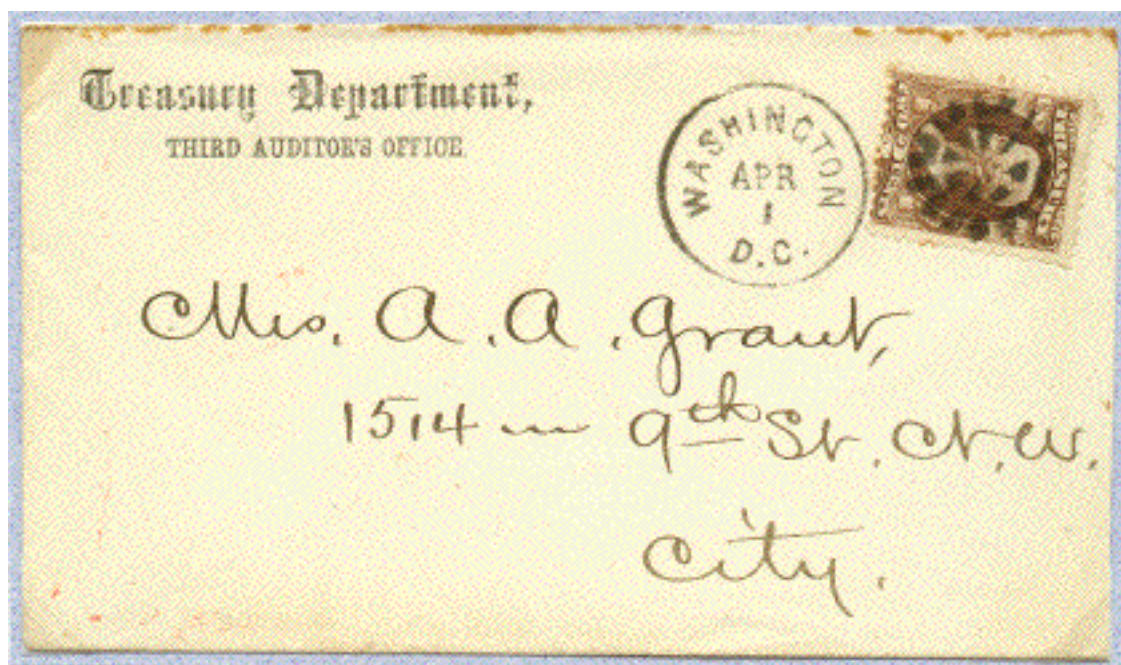 Treasury Department,
THIRD AUDITOR'S OFFICE.
WASHINGTON
APR
1
D.C.
Mrs. A. A. Grant,
1514 — 9th St. N.W.
City.